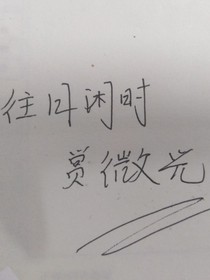 往日闲时
赏微光